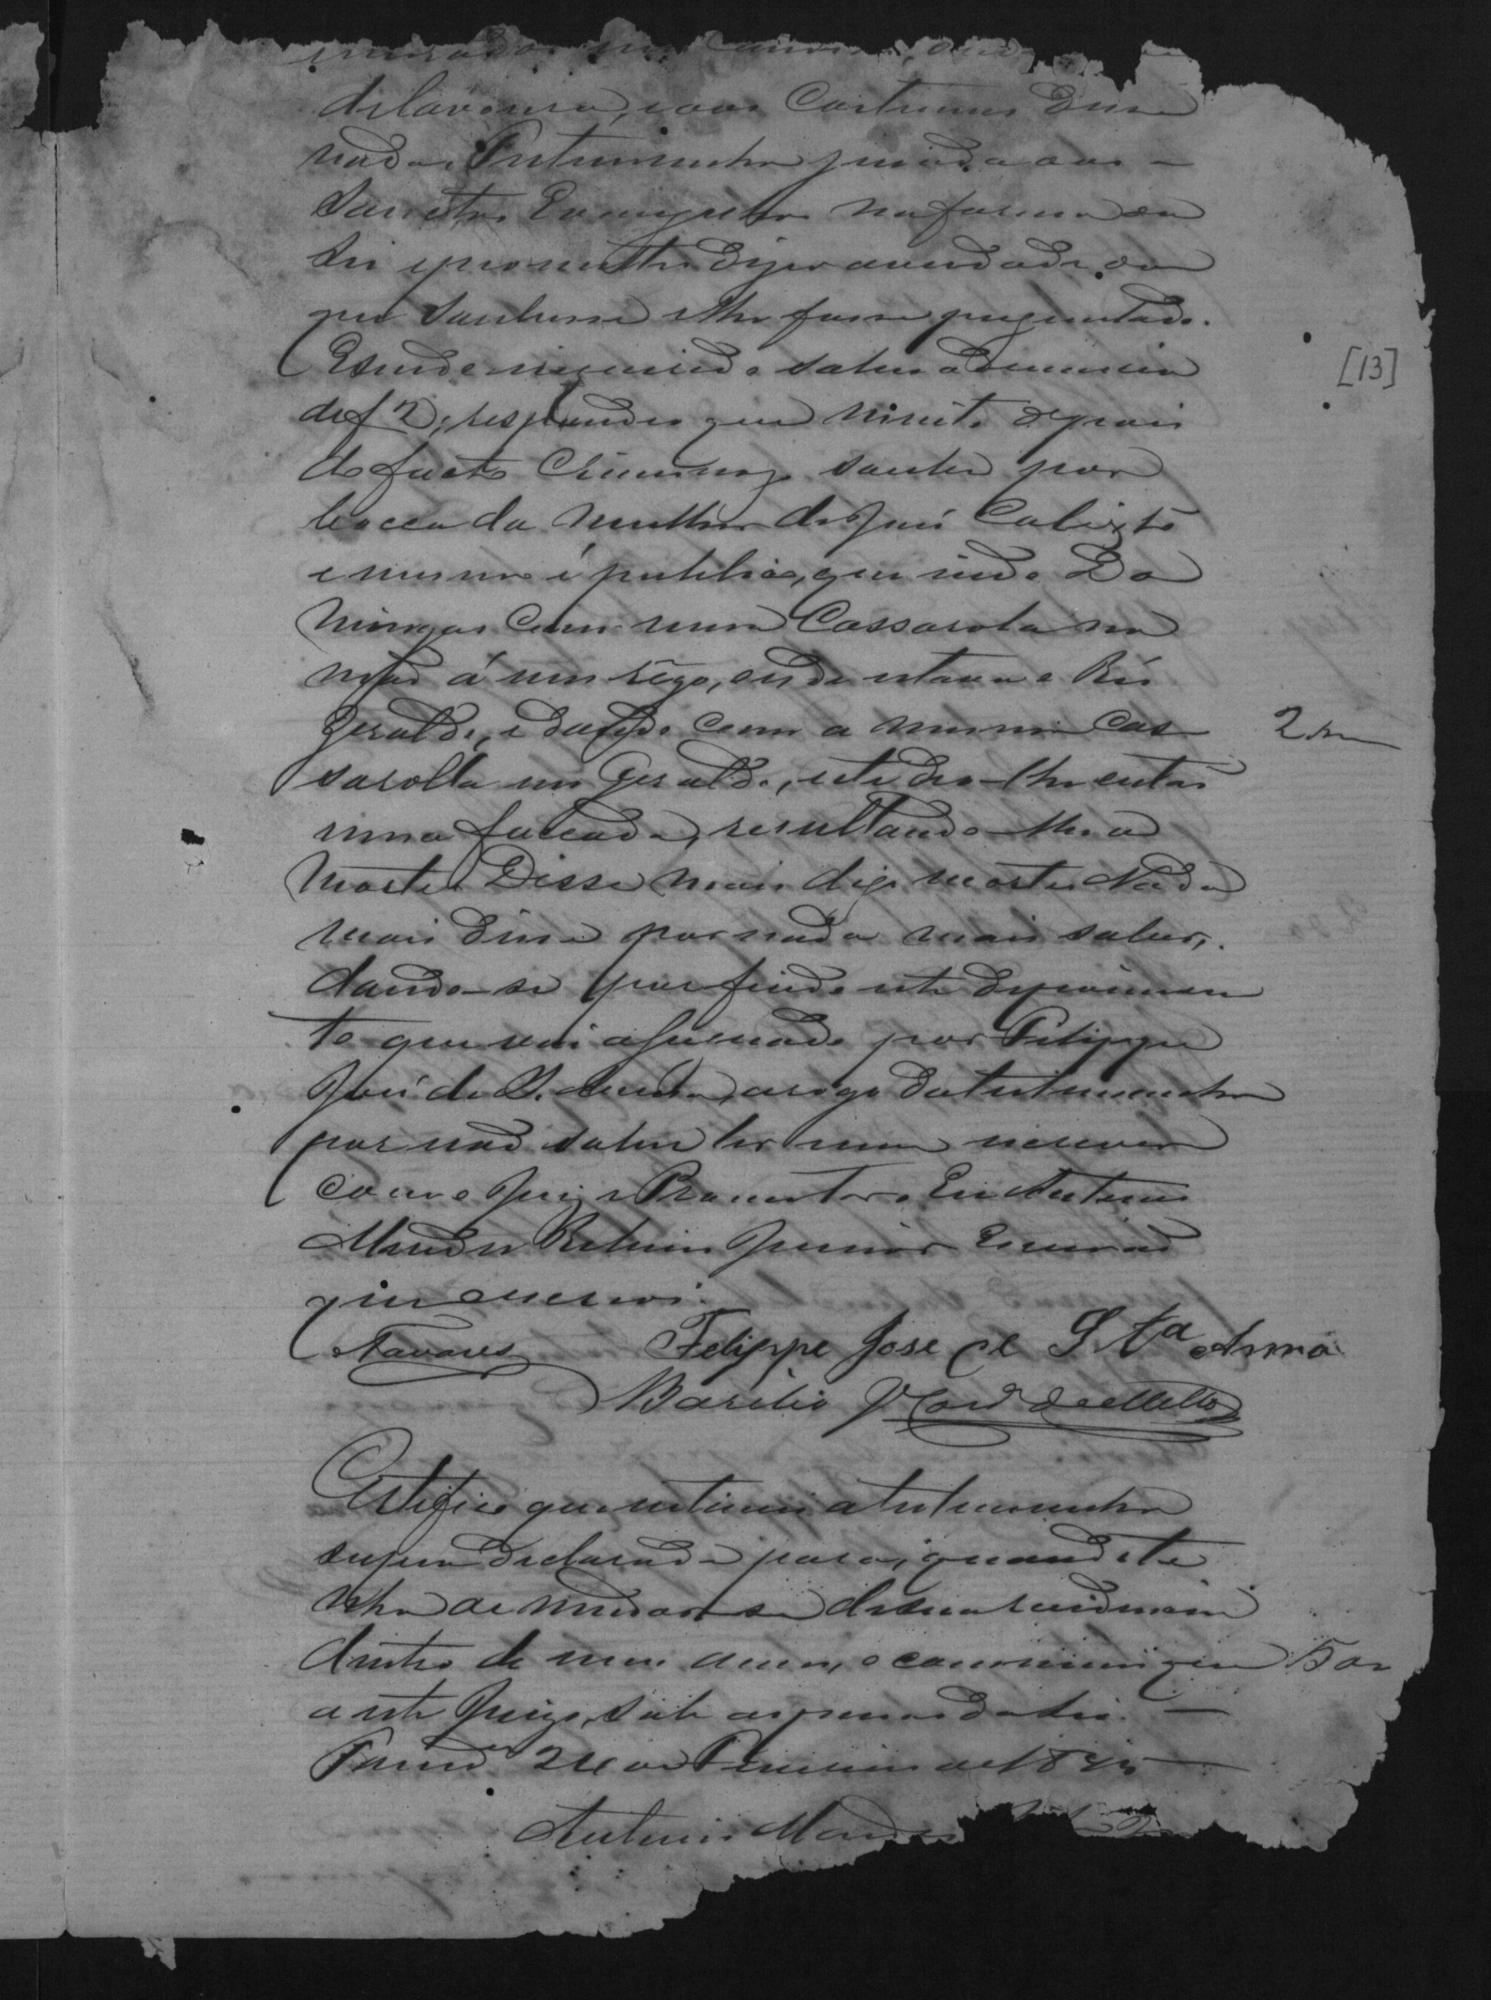 morador no
de lavoura, e aos Costumes disse
nada. Testemunha jurada aos
Sanctos Evangelhos na forma da
Lei e prometteo dizer a verdade do
que soubesse e lhe fosse preguntado.
E sendo inquerido sobre a denuncia
de f 2, respondeo que noite depois
do facto Criminoso soube por
bocca da mulher de José Calixto
e mesmo é publico, que indo Do
mingas com uma Cassarola na
mão á um rêgo, onde estava o Réo
Geraldo, e dando com a mesma Cas
sarolla em Geraldo, este deo-lhe entao
uma facada, resultando-lhe a
morte. Disse mais digo morte. Nada
mais disse por nada mais saber,
dando-se por findo este depoimen
to que vai assignado por Felippe
José de S. Anna, a rogo da testemunha
por não saber ler nem escrever
com o Juiz e Promotor. Eu Antonio
Mendes Junior Escrivão
que escrevi.
Tavares Felippe José de Sta Anna
Basilio de Mello
Certifico que intimei a testemunha
supra declarada para, quando te
nha de mudar-se de sua residencia
dentro de um anno, o communique
a este Juizo, sob as penas da lei.
24 de de 18
Antonio Mendes
[13]